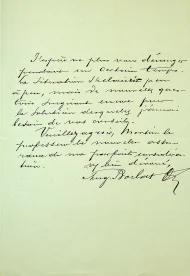 J'espère ne plus vous déranger
pendant un certain temps.
La situation s'éclaircit peu
à peu, mais de nouvelles ques-
tions surgissent encore pour
la solution desquelles j'aurai
besoin de vos conseils.
Veuillez agréer, Monsieur le
professeur, la nouvelle assu-
rance de ma parfaite considération
Aug.